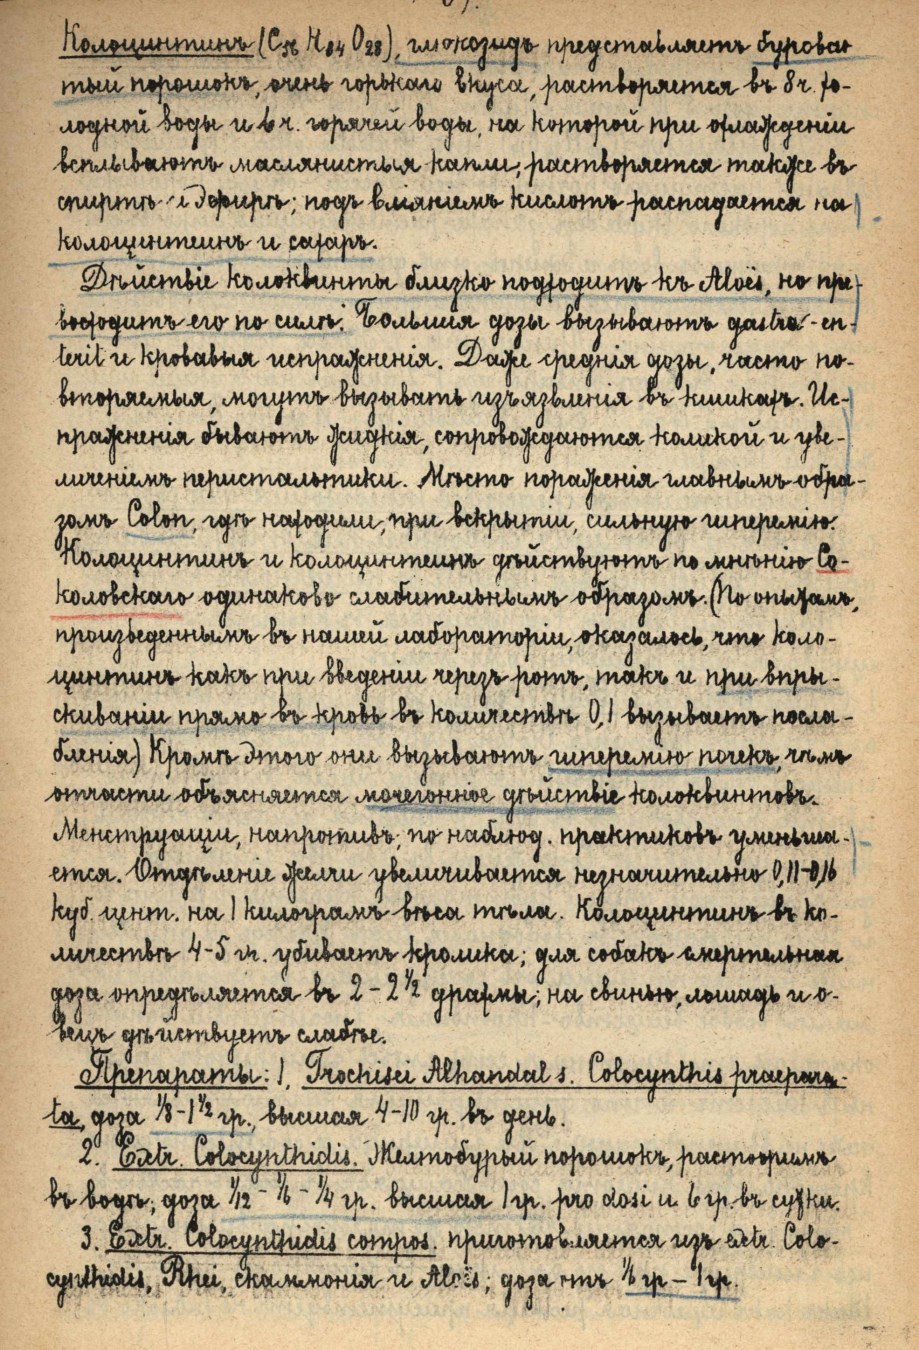 Колоцинтинъ (C56 H84 O23), глюкозидъ представляетъ бурова-
тый порошокъ, очень горькаго вкуса, растворяется въ 8 ч. хо-
лодной воды и 6 ч. горячей воды, на которой при охлажденіи
всплываютъ маслянистыя капли; растворяется также въ
спиртѣ и эфирѣ; подъ вліяніемъ кислотъ распадается на
колоцинтеинъ и сахаръ.
Дѣйствіе колоквинты близко подходитъ къ Aloës, но пре-
восходитъ его по силѣ. Большія дозы вызываютъ gastro-en-
terit и кровавыя испражненія. Даже среднія дозы, часто по-
вторяемыя, могутъ вызывать изъязвленія въ кишкахъ. Ис-
пражненія бываютъ жидкія, сопровождаются коликой и уве-
личеніемъ перистальтики. Мѣсто пораженія главнымъ обра-
зомъ Colon, гдѣ находили, при вскрытіи, сильную гиперемію.
Колоцинтинъ и колоцинтеинъ дѣйствуютъ по мнѣнію Со-
коловскаго одинаково слабительнымъ образомъ. (По опытамъ,
произведеннымъ въ нашей лабораторіи, оказалось, что коло-
цинтинъ какъ при введеніи черезъ ротъ, такъ и при впры-
скиваніи прямо въ кровь въ количествѣ 0,1 вызываетъ посла-
бленія) Кромѣ этого они вызываютъ гиперемію почекъ, чѣмъ
отчасти объясняется мочегонное дѣйствіе колоквинтовъ.
Менструаціи, напротивъ, по наблюд. практиковъ уменьша-
ется. Отдѣленіе желчи увеличивается незначительно 0,11-0,16
куб. цнт. на 1 килограмъ вѣса тѣла. Колоцинтинъ въ ко-
личествѣ 4-5 гр. убиваетъ кролика; для собакъ смертельная
доза опредѣляется въ 2 - 2 1/2 драхмы; на свинью, лошадь и о-
вецъ дѣйствуетъ слабѣе.
Препараты: 1, Trochisci Alhandal s. Colocynthis praepara-
ta, доза 1/8-1 1/2 гр., высшая 4-10 гр. въ день.
2. Extr. Colocynthidis. Желтобурый порошокъ, растворимъ
въ водѣ; доза 1/12 - 1/6 - 1/4 гр. высшая 1 гр. pro dosi и 6 гр. въ сутки.
3. Extr. Colocynthidis compos. приготовляется изъ extr. Colo-
cynthidis, Rhei, скаммонія и Aloës; доза отъ 1/6 гр - 1 гр.